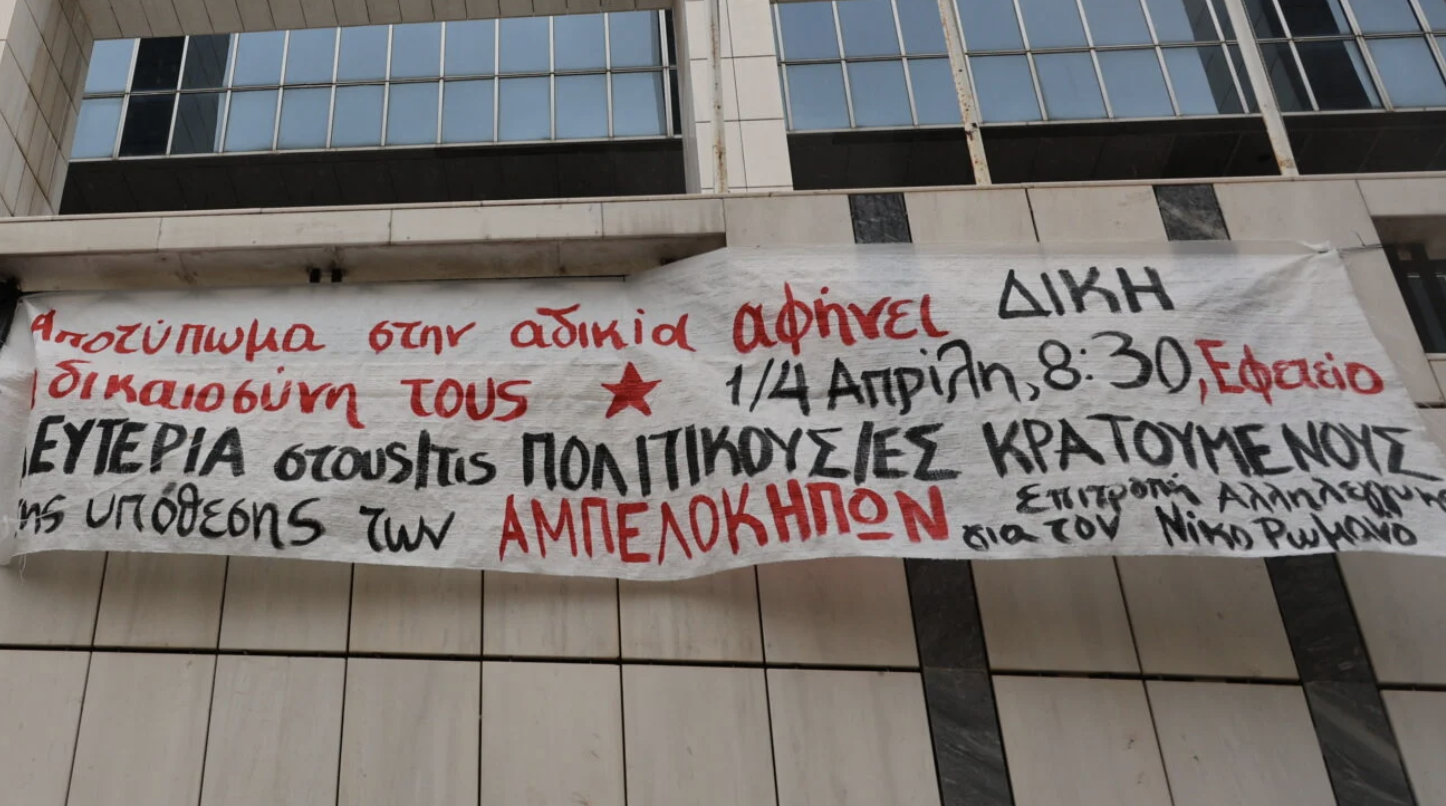 Αποτύπωμα στην αδικία αφήνει ΔΙΚΗ
δικαιοσύνη τους ★ 1/4 Απρίλη, 8:30, Εφετείο
ΕΥΤΕΡΙΑ στους/τις ΠΟΛΙΤΙΚΟΥΣ/ΕΣ ΚΡΑΤΟΥΜΕΝΟΥΣ
ης υπόθεσης των ΑΜΠΕΛΟΚΗΠΩΝ Επιτροπή Αλληλεγγύης
για τον Νίκο Ρωμανό